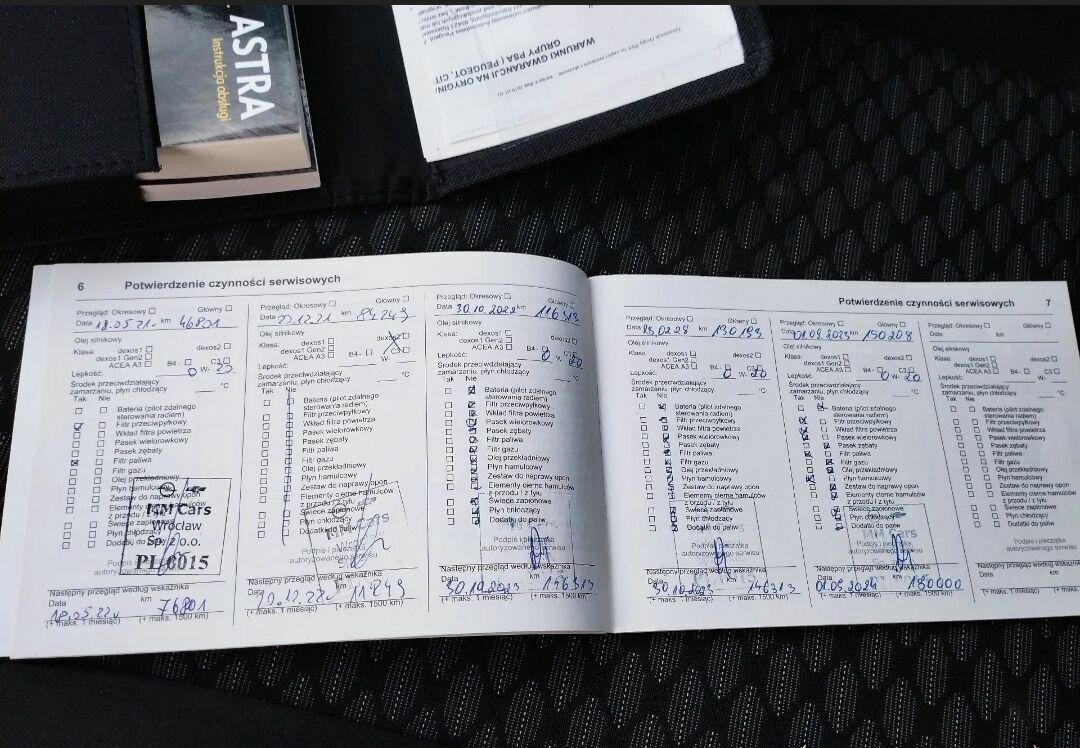 ASTRA
Instrukcja obsługi
WARUNKI GWARANCJI NA ORYGIN
GRUPY PSA ( PEUGEOT, CIT
6 Potwierdzenie czynności serwisowych
Przegląd: Okresowy Główny
Data 18.05.21. km 46801
Olej silnikowy
Klasa: dexos1 dexos2
dexos1 Gen2 B4- C3
ACEA A3
Lepkość: 0 W-
Środek przeciwdziałający
zamarzaniu, płyn chłodzący °C
Tak Nie
Bateria (pilot zdalnego
sterowania radiem)
Filtr przeciwpyłkowy
Wkład filtra powietrza
Pasek wielorowkowy
Pasek zębaty
Filtr paliwa
Filtr gazu
Olej przekładniowy
Płyn hamulcowy
Zestaw do naprawy opon
MM Cars
Wrocław
Sp. z o.o.
PL 0015
Następny przegląd według wskaźnika
Data km
18.05.22r 76801
(+ maks. 1 miesiąc) (+ maks. 1500 km)
Przegląd: Okresowy Główny
Data km
Olej silnikowy
Klasa: dexos1 dexos2
dexos1 Gen2 B4- C3
ACEA A3
Lepkość: W-
Środek przeciwdziałający
zamarzaniu, płyn chłodzący °C
Tak Nie
Bateria (pilot zdalnego
sterowania radiem)
Filtr przeciwpyłkowy
Wkład filtra powietrza
Pasek wielorowkowy
Pasek zębaty
Filtr paliwa
Filtr gazu
Olej przekładniowy
Płyn hamulcowy
Zestaw do naprawy opon
Elementy cierne hamulców
z przodu i z tyłu
Świece zapłonowe
Płyn chłodzący
Dodatki do paliw
Podpis i pieczątka
autoryzowanego serwisu
Następny przegląd według wskaźnika
Data km
(+ maks. 1 miesiąc) (+ maks. 1500 km)
Przegląd: Okresowy Główny
Data 30.10.2022 km 116313
Olej silnikowy
Klasa: dexos1 dexos2
dexos1 Gen2 B4- C3
ACEA A3
Lepkość: 0 W- 20
Środek przeciwdziałający
zamarzaniu, płyn chłodzący °C
Tak Nie
Bateria (pilot zdalnego
sterowania radiem)
Filtr przeciwpyłkowy
Wkład filtra powietrza
Pasek wielorowkowy
Pasek zębaty
Filtr paliwa
Filtr gazu
Olej przekładniowy
Płyn hamulcowy
Zestaw do naprawy opon
Elementy cierne hamulców
z przodu i z tyłu
Świece zapłonowe
Płyn chłodzący
Dodatki do paliw
Podpis i pieczątka
autoryzowanego serwisu
Następny przegląd według wskaźnika
Data km
30.10.2023 146313
(+ maks. 1 miesiąc) (+ maks. 1500 km)
Potwierdzenie czynności serwisowych 7
Przegląd: Okresowy Główny
Data km 130193
Olej silnikowy
Klasa: dexos1 dexos2
dexos1 Gen2 B4- C3
ACEA A3
Lepkość: 0 W- 20
Środek przeciwdziałający
zamarzaniu, płyn chłodzący °C
Tak Nie
Bateria (pilot zdalnego
sterowania radiem)
Filtr przeciwpyłkowy
Wkład filtra powietrza
Pasek wielorowkowy
Pasek zębaty
Filtr paliwa
Filtr gazu
Olej przekładniowy
Płyn hamulcowy
Zestaw do naprawy opon
Elementy cierne hamulców
z przodu i z tyłu
Świece zapłonowe
Płyn chłodzący
Dodatki do paliw
Podpis i pieczątka
autoryzowanego serwisu
Następny przegląd według wskaźnika
Data km
30.10.2023 146313
(+ maks. 1 miesiąc) (+ maks. 1500 km)
Przegląd: Okresowy Główny
Data 01.09.2023 km 150208
Olej silnikowy
Klasa: dexos1 dexos2
dexos1 Gen2 B4- C3
ACEA A3
Lepkość: 0 W- 20
Środek przeciwdziałający
zamarzaniu, płyn chłodzący °C
Tak Nie
Bateria (pilot zdalnego
sterowania radiem)
Filtr przeciwpyłkowy
Wkład filtra powietrza
Pasek wielorowkowy
Pasek zębaty
Filtr paliwa
Filtr gazu
Olej przekładniowy
Płyn hamulcowy
Zestaw do naprawy opon
Elementy cierne hamulców
z przodu i z tyłu
Świece zapłonowe
Płyn chłodzący
Dodatki do paliw
MM Cars
Podpis i pieczątka
autoryzowanego serwisu
Następny przegląd według wskaźnika
Data km
01.09.2024 180000
(+ maks. 1 miesiąc) (+ maks. 1500 km)
Przegląd: Okresowy Główny
Data km
Olej silnikowy
Klasa: dexos1 dexos2
dexos1 Gen2 B4- C3
ACEA A3
Lepkość: W-
Środek przeciwdziałający
zamarzaniu, płyn chłodzący °C
Tak Nie
Bateria (pilot zdalnego
sterowania radiem)
Filtr przeciwpyłkowy
Wkład filtra powietrza
Pasek wielorowkowy
Pasek zębaty
Filtr paliwa
Filtr gazu
Olej przekładniowy
Płyn hamulcowy
Zestaw do naprawy opon
Elementy cierne hamulców
z przodu i z tyłu
Świece zapłonowe
Płyn chłodzący
Dodatki do paliw
Podpis i pieczątka
autoryzowanego serwisu
Następny przegląd według wskaźnika
Data km
(+ maks. 1 miesiąc)